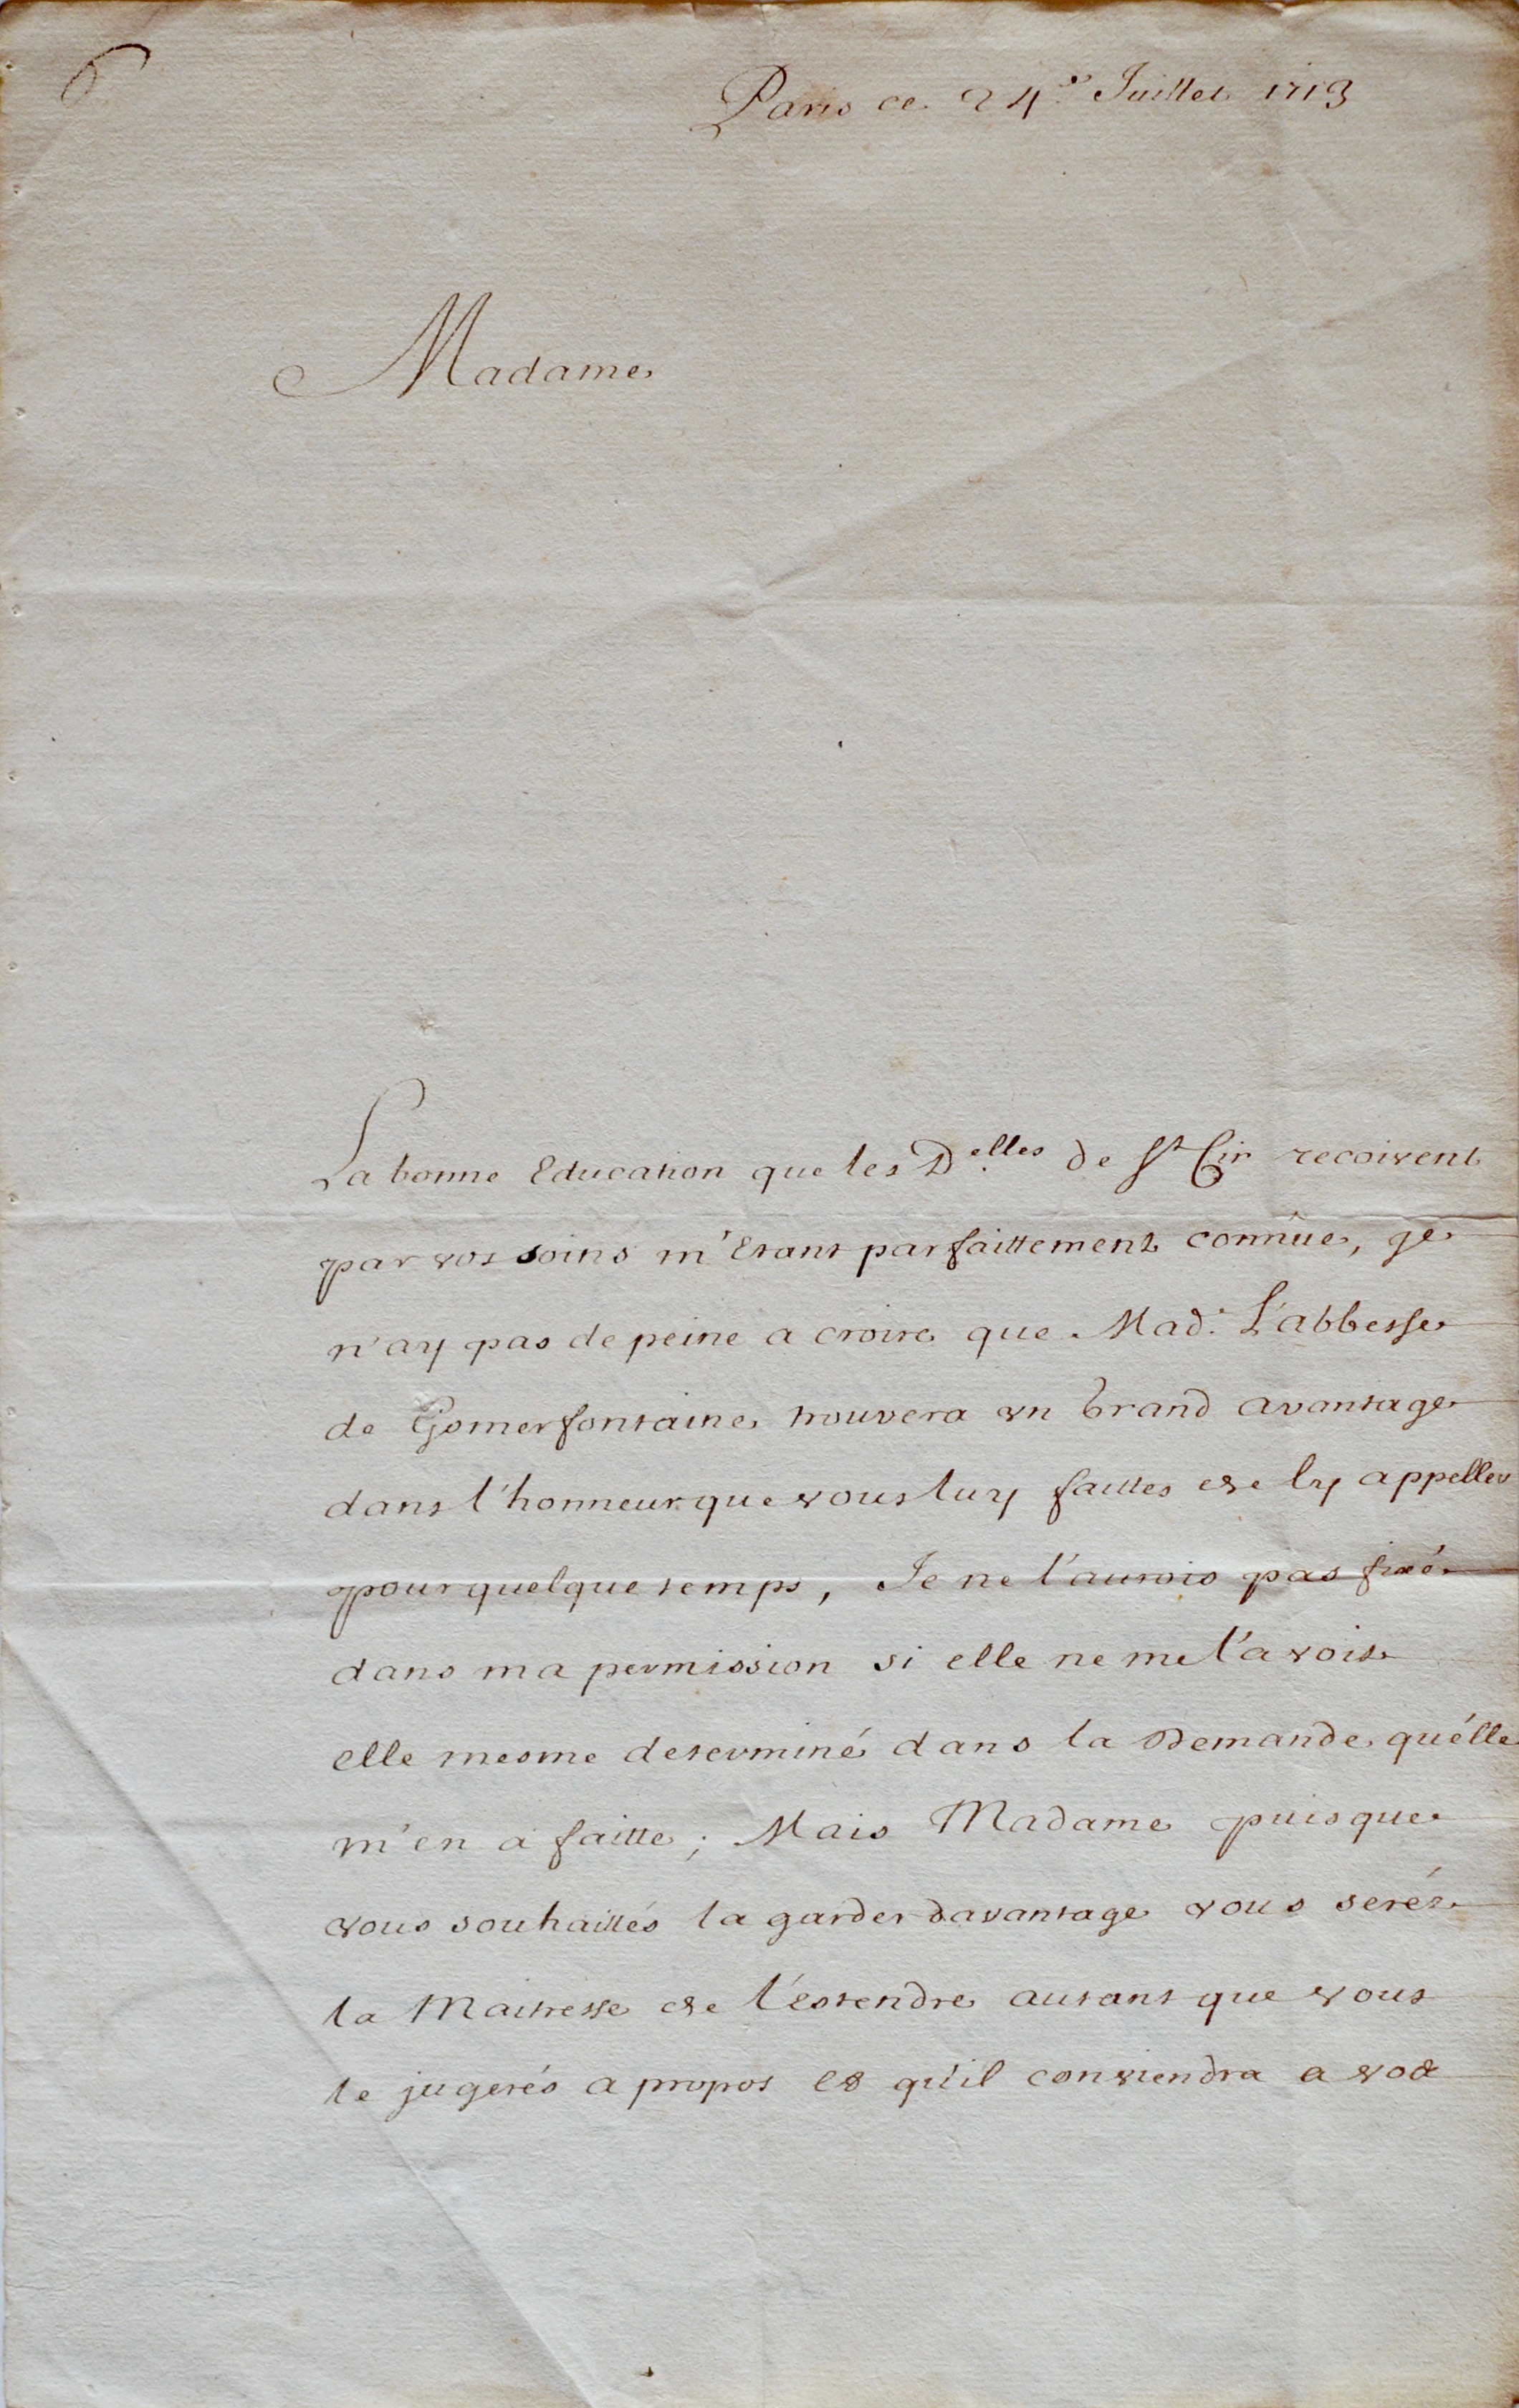 6
Paris ce 24.e Juillet 1713
Madame
La bonne Education que les D.elles de St Cir recoivent
par vos soins m'Etant parfaittement connüe, je
n'ay pas de peine a croire que Mad.e L'abbesse
de Gomerfontaine trouvera un Grand avantage
dans l'honneur que vous luy faittes de ly appeller
pour quelque temps, Je ne l'aurois pas fixé
dans ma permission si elle ne me l'avoit
elle mesme determiné dans la Demande qu'elle
m'en a faitte; Mais Madame puisque
vous souhaittés la garder davantage vous serés
la Maitresse de l'estendre autant que vous
le jugerés a propos et qu'il conviendra a vos